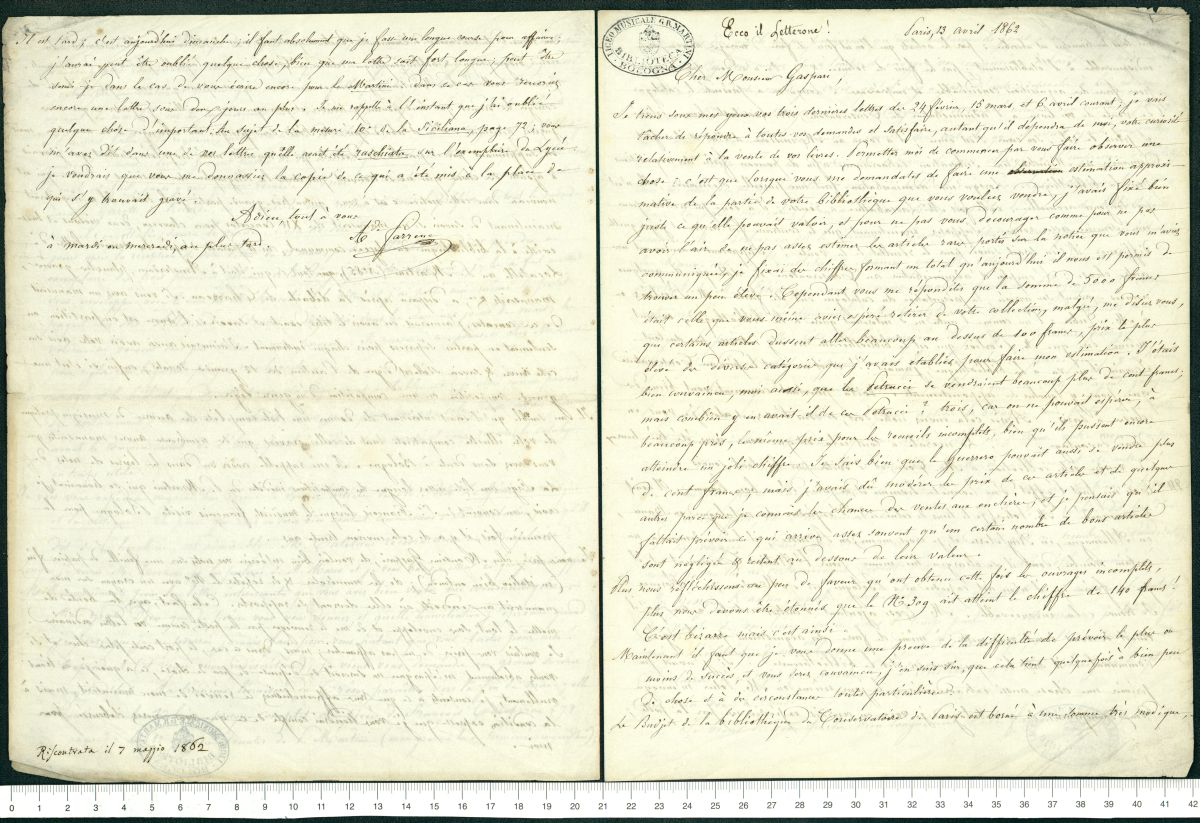 Il est tard; c'est aujourd'hui dimanche; il faut absolument que je fasse une longue course pour affaires;
j'aurai peut être oublié quelque chose, bien que ma lettre soit fort longue; peut être
serai je dans le cas de vous écrire encore pour le Martini; dans ce cas vous recevriez
encore une lettre sous deux jours au plus. Je me rappelle à l'instant que j'ai oublié
quelque chose d'important. Au sujet de la mesure 10e de la Siciliana, page 72; vous
m'avez dit dans une de vos lettres qu'elle avait été raschiata sur l'exemplaire du Lycée
je voudrais que vous me donnassiez la copie de ce qui a été mis à la place de
qui s'y trouvait gravé.
Adieu, tout à vous
à mardi ou mercredi, au plus tard.
Ad. Farrenc
Riscontrata il 7 maggio 1862
LICEO MUSICALE G.B. MARTINI
BIBLIOTECA
BOLOGNA
Ecco il Letterone!
Paris, 13 avril 1862
Cher Monsieur Gaspari,
Je tiens sous mes yeux vos trois dernières lettres des 24 février, 15 mars, et 6 avril courant; je vais
tâcher de répondre à toutes vos demandes et satisfaire, autant qu'il dépendra de moi, votre curiosité
relativement à la vente de vos livres. Permettez moi de commencer par vous faire observer une
chose: c'est que lorsque vous me demandates de faire une estimation approxi-
mative de la partie de votre bibliothèque que vous vouliez vendre, j'avais fixé bien
juste ce qu'elle pouvait valoir, et pour ne pas vous décourager comme pour ne pas
avoir l'air de ne pas assez estimer les articles rares portés sur la notice que vous m'aviez
communiquée, je fixai des chiffres formant un total qu'aujourd'hui il nous est permis de
trouver un peu élevé. Cependant vous me répondites que la somme de 5000 francs
était celle que vous même aviez espéré retirer de votre collection, malgré, me disiez vous,
que certains articles dussent aller beaucoup au dessus de 100 francs, prix le plus
élevé des diverses catégories que j'avais établies pour faire mon estimation. J'étais
bien convaincu, moi aussi, que les Petrucci se vendraient beaucoup plus de cent francs;
mais combien y en avait il de ces Petrucci? trois, car on ne pouvait espérer, à
beaucoup près, le même prix pour les recueils incomplets, bien qu'ils pussent encore
atteindre un joli chiffre. Je sais bien que le Guerrero pouvait aussi se vendre plus
de cent francs, mais j'avais dû modérer le prix de ces articles et de quelques
autres parce que je connais les chances des ventes aux enchères, et je pensais qu'il
fallait prévoir ce qui arrive assez souvent qu'un certain nombre de bons articles
sont négligés & restent au dessous de leur valeur.
Plus nous réfléchissons au peu de faveur qu'ont obtenu cette fois les ouvrages incomplets,
plus nous devons être étonnés que le No 309 ait atteint le chiffre de 140 francs!
C'est bizarre mais c'est ainsi.
Maintenant il faut que je vous donne une preuve de la difficulté de prévoir le plus ou
moins de succès, et vous serez convaincu, j'en suis sûr, que cela tient quelquefois à bien peu
de chose et à des circonstances toutes particulières.
Le Budget de la bibliothèque du Conservatoire de Paris est borné à une somme très modique,